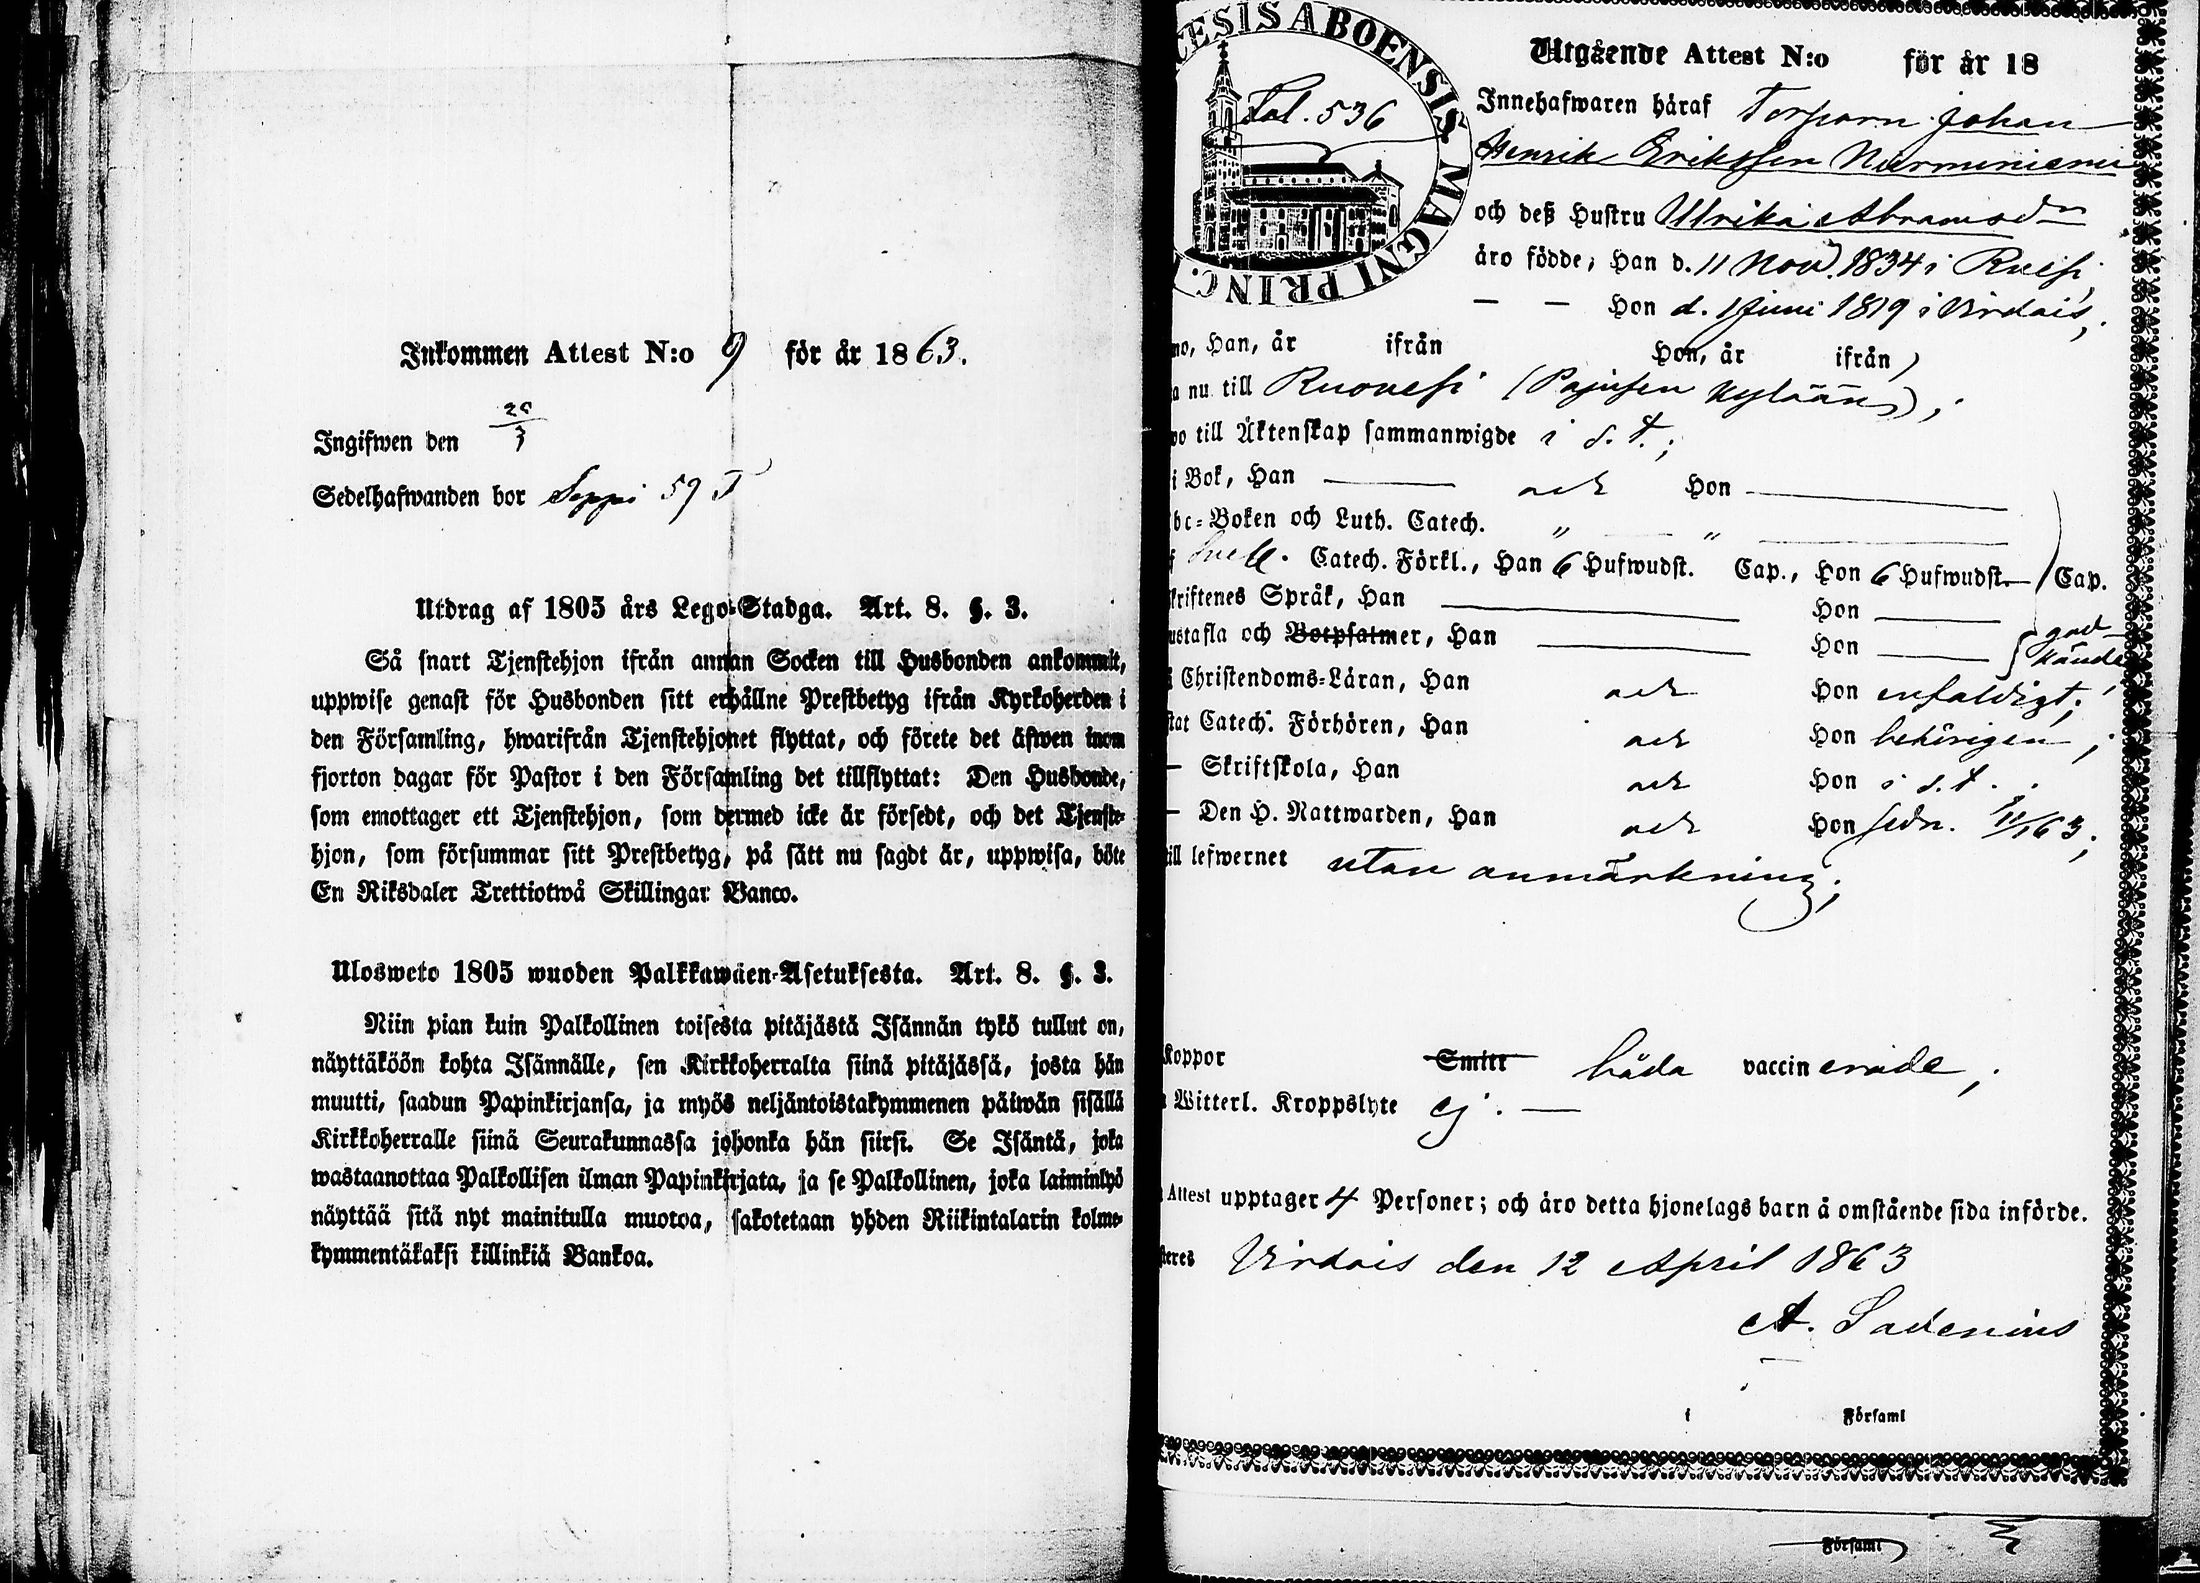 Inkommen Attest N:o 9 för år 1863.
Ingifwen den
Sedelhafwanden bor Seppi 59 T
Utdrag af 1805 års Lego-Stadga. Art. 8. §. 3.
Så snart Tjenstehjon ifrån annan Socken till Husbonden ankommit,
uppwise genast för Husbonden sitt erhållne Prestbetyg ifrån Kyrkoherden i
den Församling, hwarifrån Tjenstehjonet flyttat, och förete det äfwen inom
fjorton dagar för Pastor i den Församling det tillflyttat: Den Husbonde,
som emottager ett Tjenstehjon, som dermed icke är försedt, och det Tjenste-
hjon, som försummar sitt Prestbetyg, på sätt nu sagdt är, uppwisa, böte
En Riksdaler Trettiotwå Skillingar Banco.
Ulosweto 1805 wuoden Palkkawäen-Asetuksesta. Art. 8. §. 3.
Niin pian kuin Palkollinen toisesta pitäjästä Isännän tykö tullut on,
näyttäköön kohta Isännälle, sen Kirkkoherralta siinä pitäjässä, josta hän
muutti, saadun Papinkirjansa, ja myös neljäntoistakymmenen päiwän sisällä
Kirkkoherralle siinä Seurakunnassa johonka hän siirsi. Se Isäntä, joka
wastaanottaa Palkollisen ilman Papinkirjata, ja se Palkollinen, joka laiminlyö
näyttää sitä nyt mainitulla muotoa, sakotetaan yhden Riikintalarin kolme-
kymmentäkaksi killinkiä Bankoa.
CESIS ABOENSIS. MAGNI PRINC.
Fol. 536
Utgående Attest N:o för år 18
Innehafwaren häraf Torparn Johan
Henrik Eriksson Nurminiemi
och deß Hustru Ulrika Abramsdr
äro födde; Han d. 11 Nov. 1834 i
— — Hon d. 1 Juni 1819 i Virdois,
no, Han, år ifrån Hon, år ifrån
a nu till Ruovesi
wo till Äktenskap sammanwigde i s. t.;
i Bok, Han — och Hon —
bc-Boken och Luth. Catech. " — "
Sveb. Catech. Förkl., Han 6 Hufwudst. Cap., Hon 6 Hufwudst. — Cap.
kriftenes Språk, Han — Hon —
ustafla och Botpsalmer, Han — Hon — god-
kände,
Christendoms-Läran, Han och Hon enfaldigt;
stat Catech. Förhören, Han och Hon behörigen;
— Skriftskola, Han och Hon i s. t.
— Den H. Nattwarden, Han och Hon sedn. 63;
till lefwernet utan anmärkning;
Koppor Smitt båda vaccinerade;
Witterl. Kroppslyte ej. —
Attest upptager 4 Personer; och äro detta hjonelags barn å omstående sida införde.
steres Virdois den 12 April 1863
A. Sadenius
i Församl
Församl